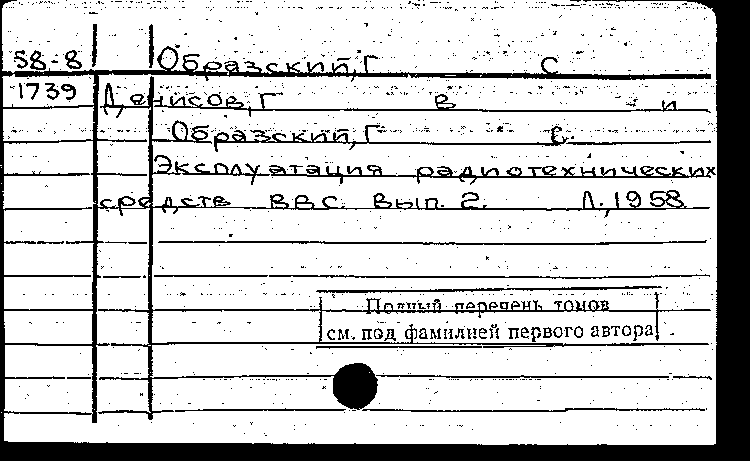 58-8 Образский, Г С
1739 Денисов, Г В и
Образский, Г С.
Эксплуатация радиотехнических
средств ВВС. Вып. 2. Л., 1958
Полный перечень томов
см. под фамилией первого автора